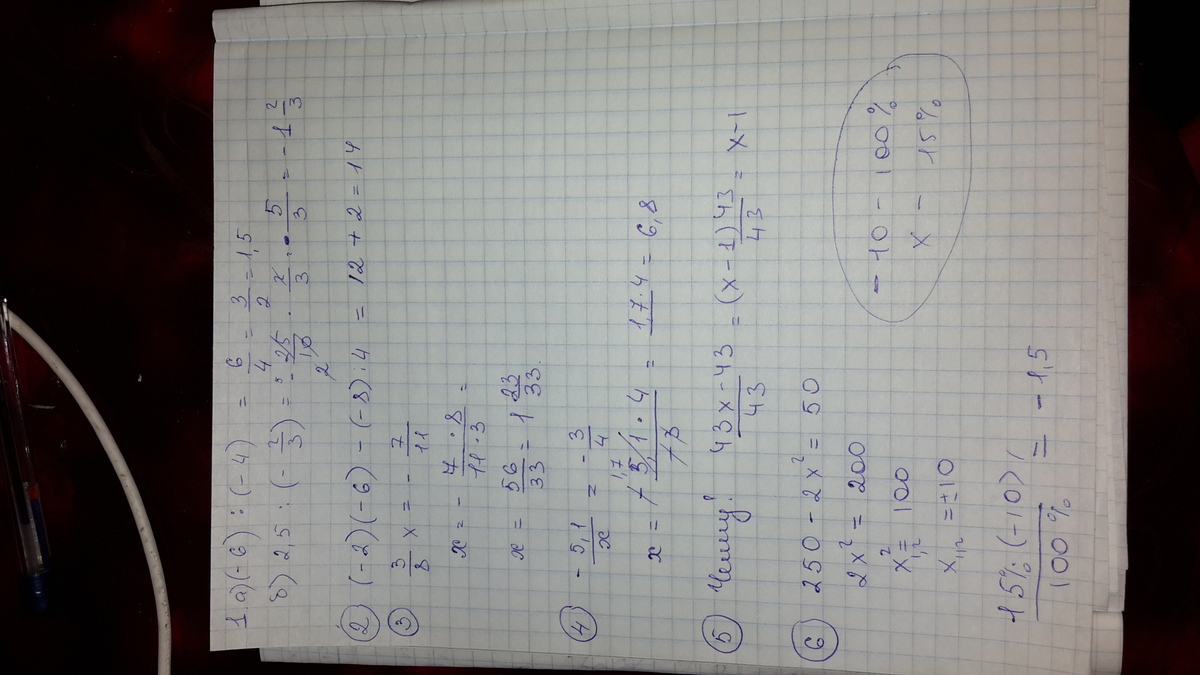 1. а) (-6) : (-4) = 6/4 = 3/2 = 1,5
б) 2,5 : (- 2/3) = - 25/10 · 2/3 : 5/3 = - 1 2/3
2
② (-2)(-6) - (-8) : 4 = 12 + 2 = 14
③ 3/8 x = - 7/11
x = - 7·8/11·3 =
x = 56/33 = 1 23/33.
④ - 5,1/x = - 3/4
1,7
x = -5,1·4/-3 = 1,7·4 = 6,8
⑤ 43x-43/43 = (x-1)43/43 = x-1
⑥ 250 - 2x² = 50
2x² = 200
x²1,2 = 100
x1,2 = ±10
- 10 - 100%
x - 15%
15% (-10)/100% = - 1,5